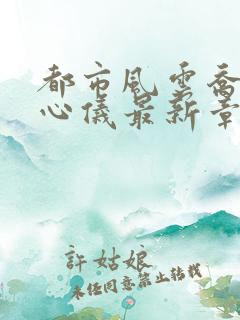 都市风云乔
心仪最新章
許姑娘
未经同意禁止转载